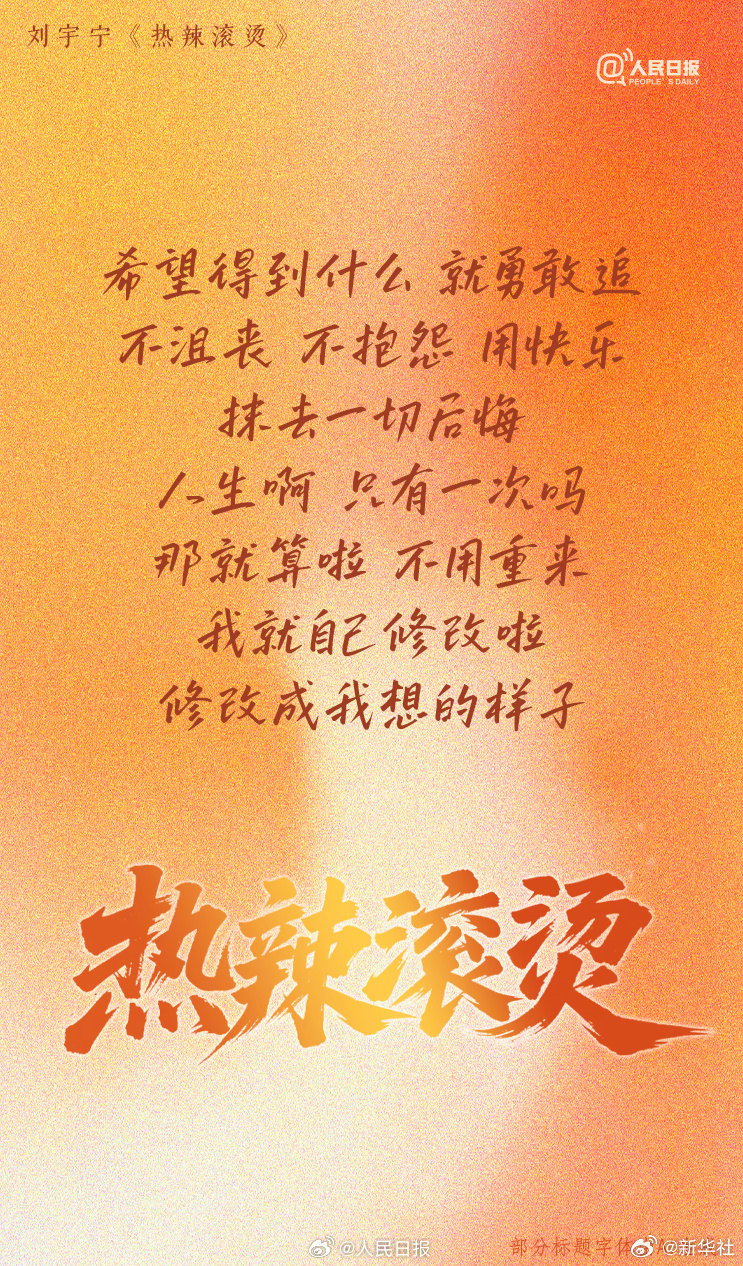 刘宇宁《热辣滚烫》
@人民日报
PEOPLE'S DAILY
希望得到什么 就勇敢追
不沮丧 不抱怨 用快乐
抹去一切后悔
人生啊 只有一次吗
那就算啦 不用重来
我就自己修改啦
修改成我想的样子
热辣滚烫
@人民日报
部分标题字体
@新华社